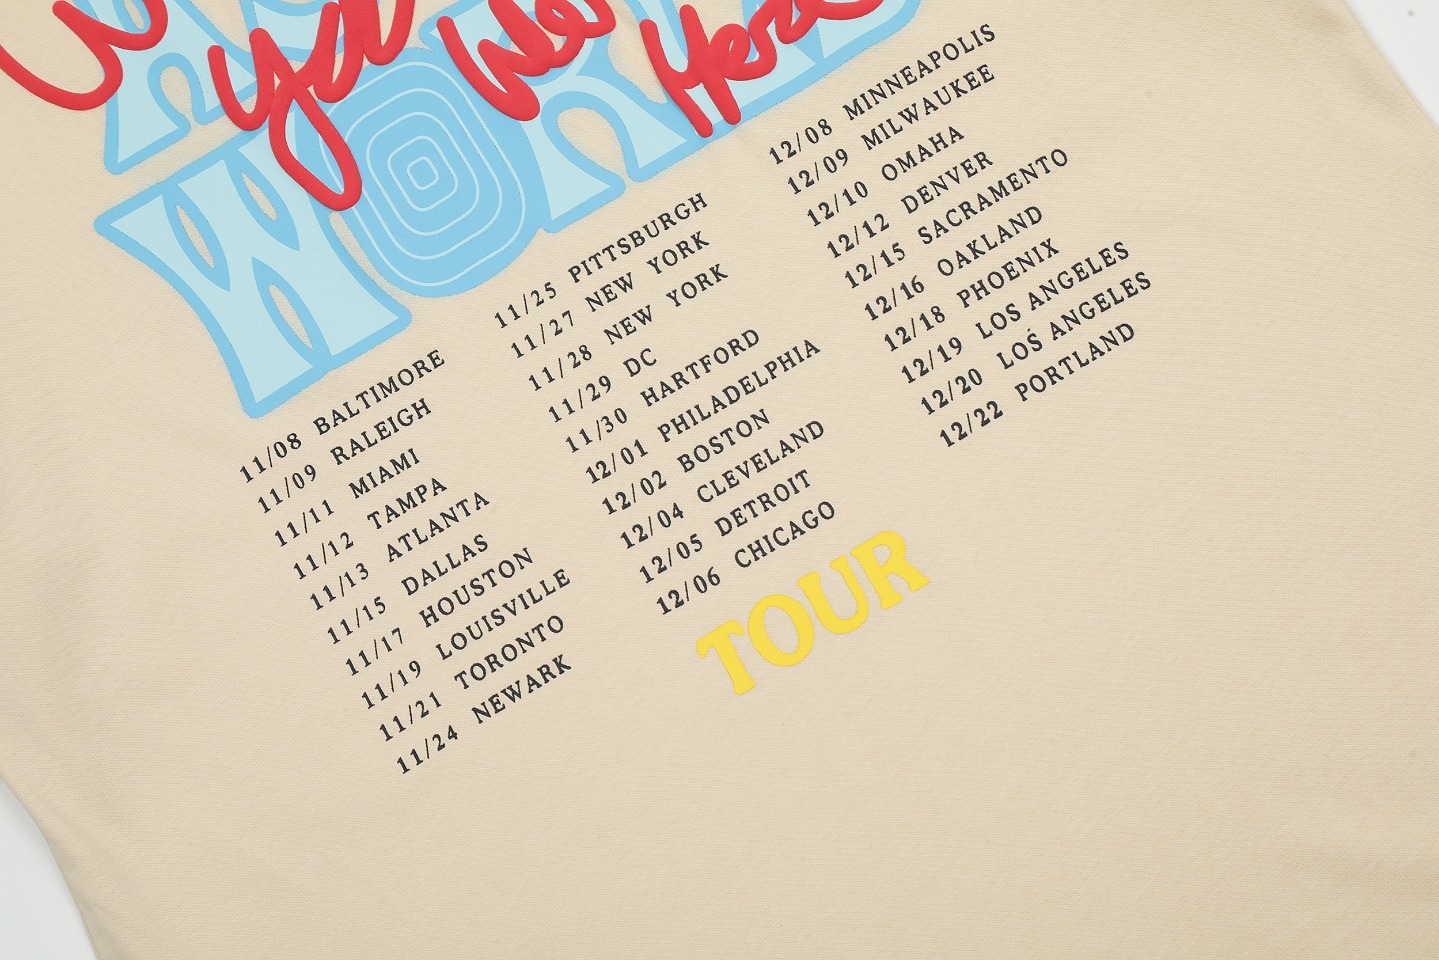 WORLD
11/08 BALTIMORE
11/09 RALEIGH
11/11 MIAMI
11/12 TAMPA
11/13 ATLANTA
11/15 DALLAS
11/17 HOUSTON
11/19 LOUISVILLE
11/21 TORONTO
11/24 NEWARK
11/25 PITTSBURGH
11/27 NEW YORK
11/28 NEW YORK
11/29 DC
11/30 HARTFORD
12/01 PHILADELPHIA
12/02 BOSTON
12/04 CLEVELAND
12/05 DETROIT
12/06 CHICAGO
12/08 MINNEAPOLIS
12/09 MILWAUKEE
12/10 OMAHA
12/12 DENVER
12/15 SACRAMENTO
12/16 OAKLAND
12/18 PHOENIX
12/19 LOS ANGELES
12/20 LOS ANGELES
12/22 PORTLAND
TOUR